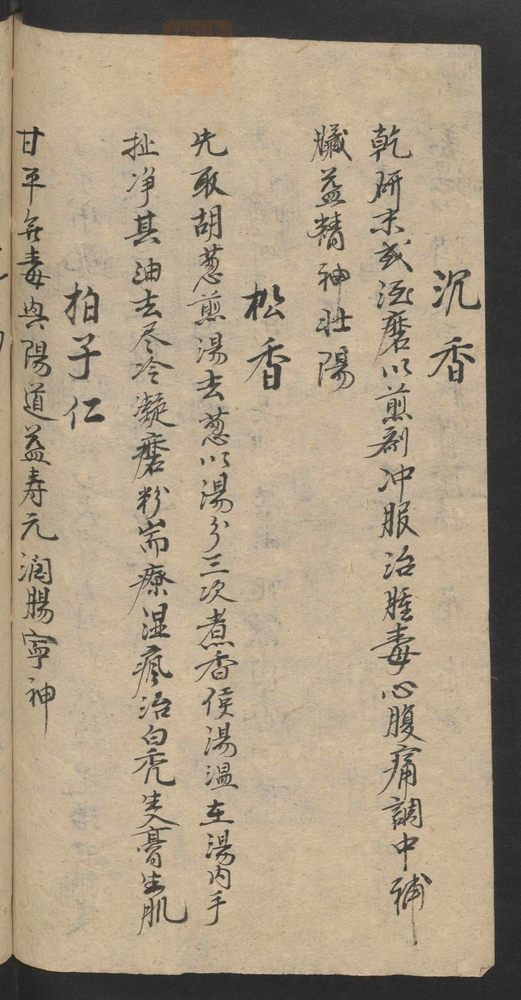 沉香
乾研末或酒磨以煎劑冲服治腫毒心腹痛調中補
臟益精神壯陽
松香
先取胡葱煎湯去葱以湯分三次煮香俟湯溫在湯内手
扯净其油去尽冷凝磨粉耑療湿瘋治白禿生入膏生肌
柏子仁
甘平无毒興陽道益寿元润腸寧神